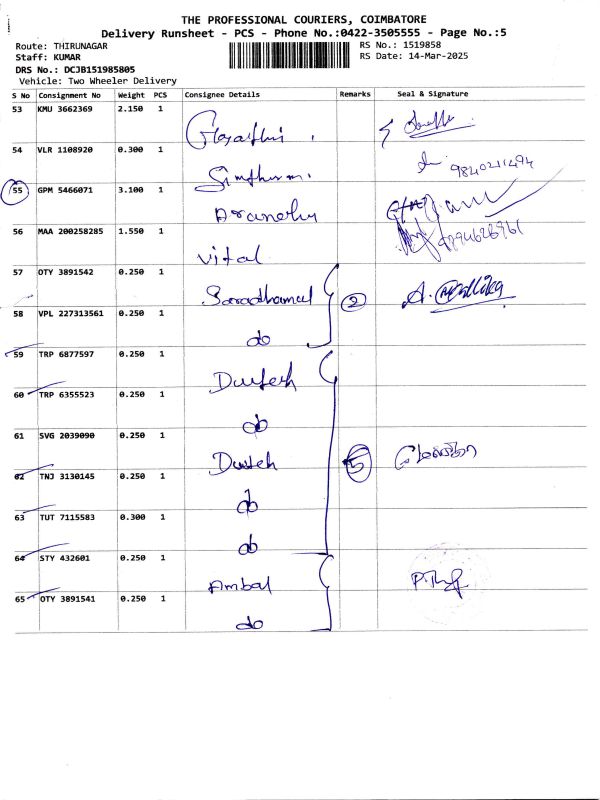 THE PROFESSIONAL COURIERS, COIMBATORE
Delivery Runsheet - PCS - Phone No.:0422-3505555 - Page No.:5
Route: THIRUNAGAR RS No.: 1519858
Staff: KUMAR RS Date: 14-Mar-2025
DRS No.: DCJB151985805
Vehicle: Two Wheeler Delivery
S No Consignment No Weight PCS Consignee Details Remarks Seal & Signature
53 KMU 3662369 2.150 1
54 VLR 1108920 0.300 1 9840211494
55 GPM 5466071 3.100 1
56 MAA 200258285 1.550 1 Vital 9894626961
57 OTY 3891542 0.250 1 2 A. Mallika
58 VPL 227313561 0.250 1 do
59 TRP 6877597 0.250 1
60 TRP 6355523 0.250 1 do
61 SVG 2039090 0.250 1 5
62 TNJ 3130145 0.250 1 do
63 TUT 7115583 0.300 1 do
64 STY 432601 0.250 1 Ambal
65 OTY 3891541 0.250 1 do